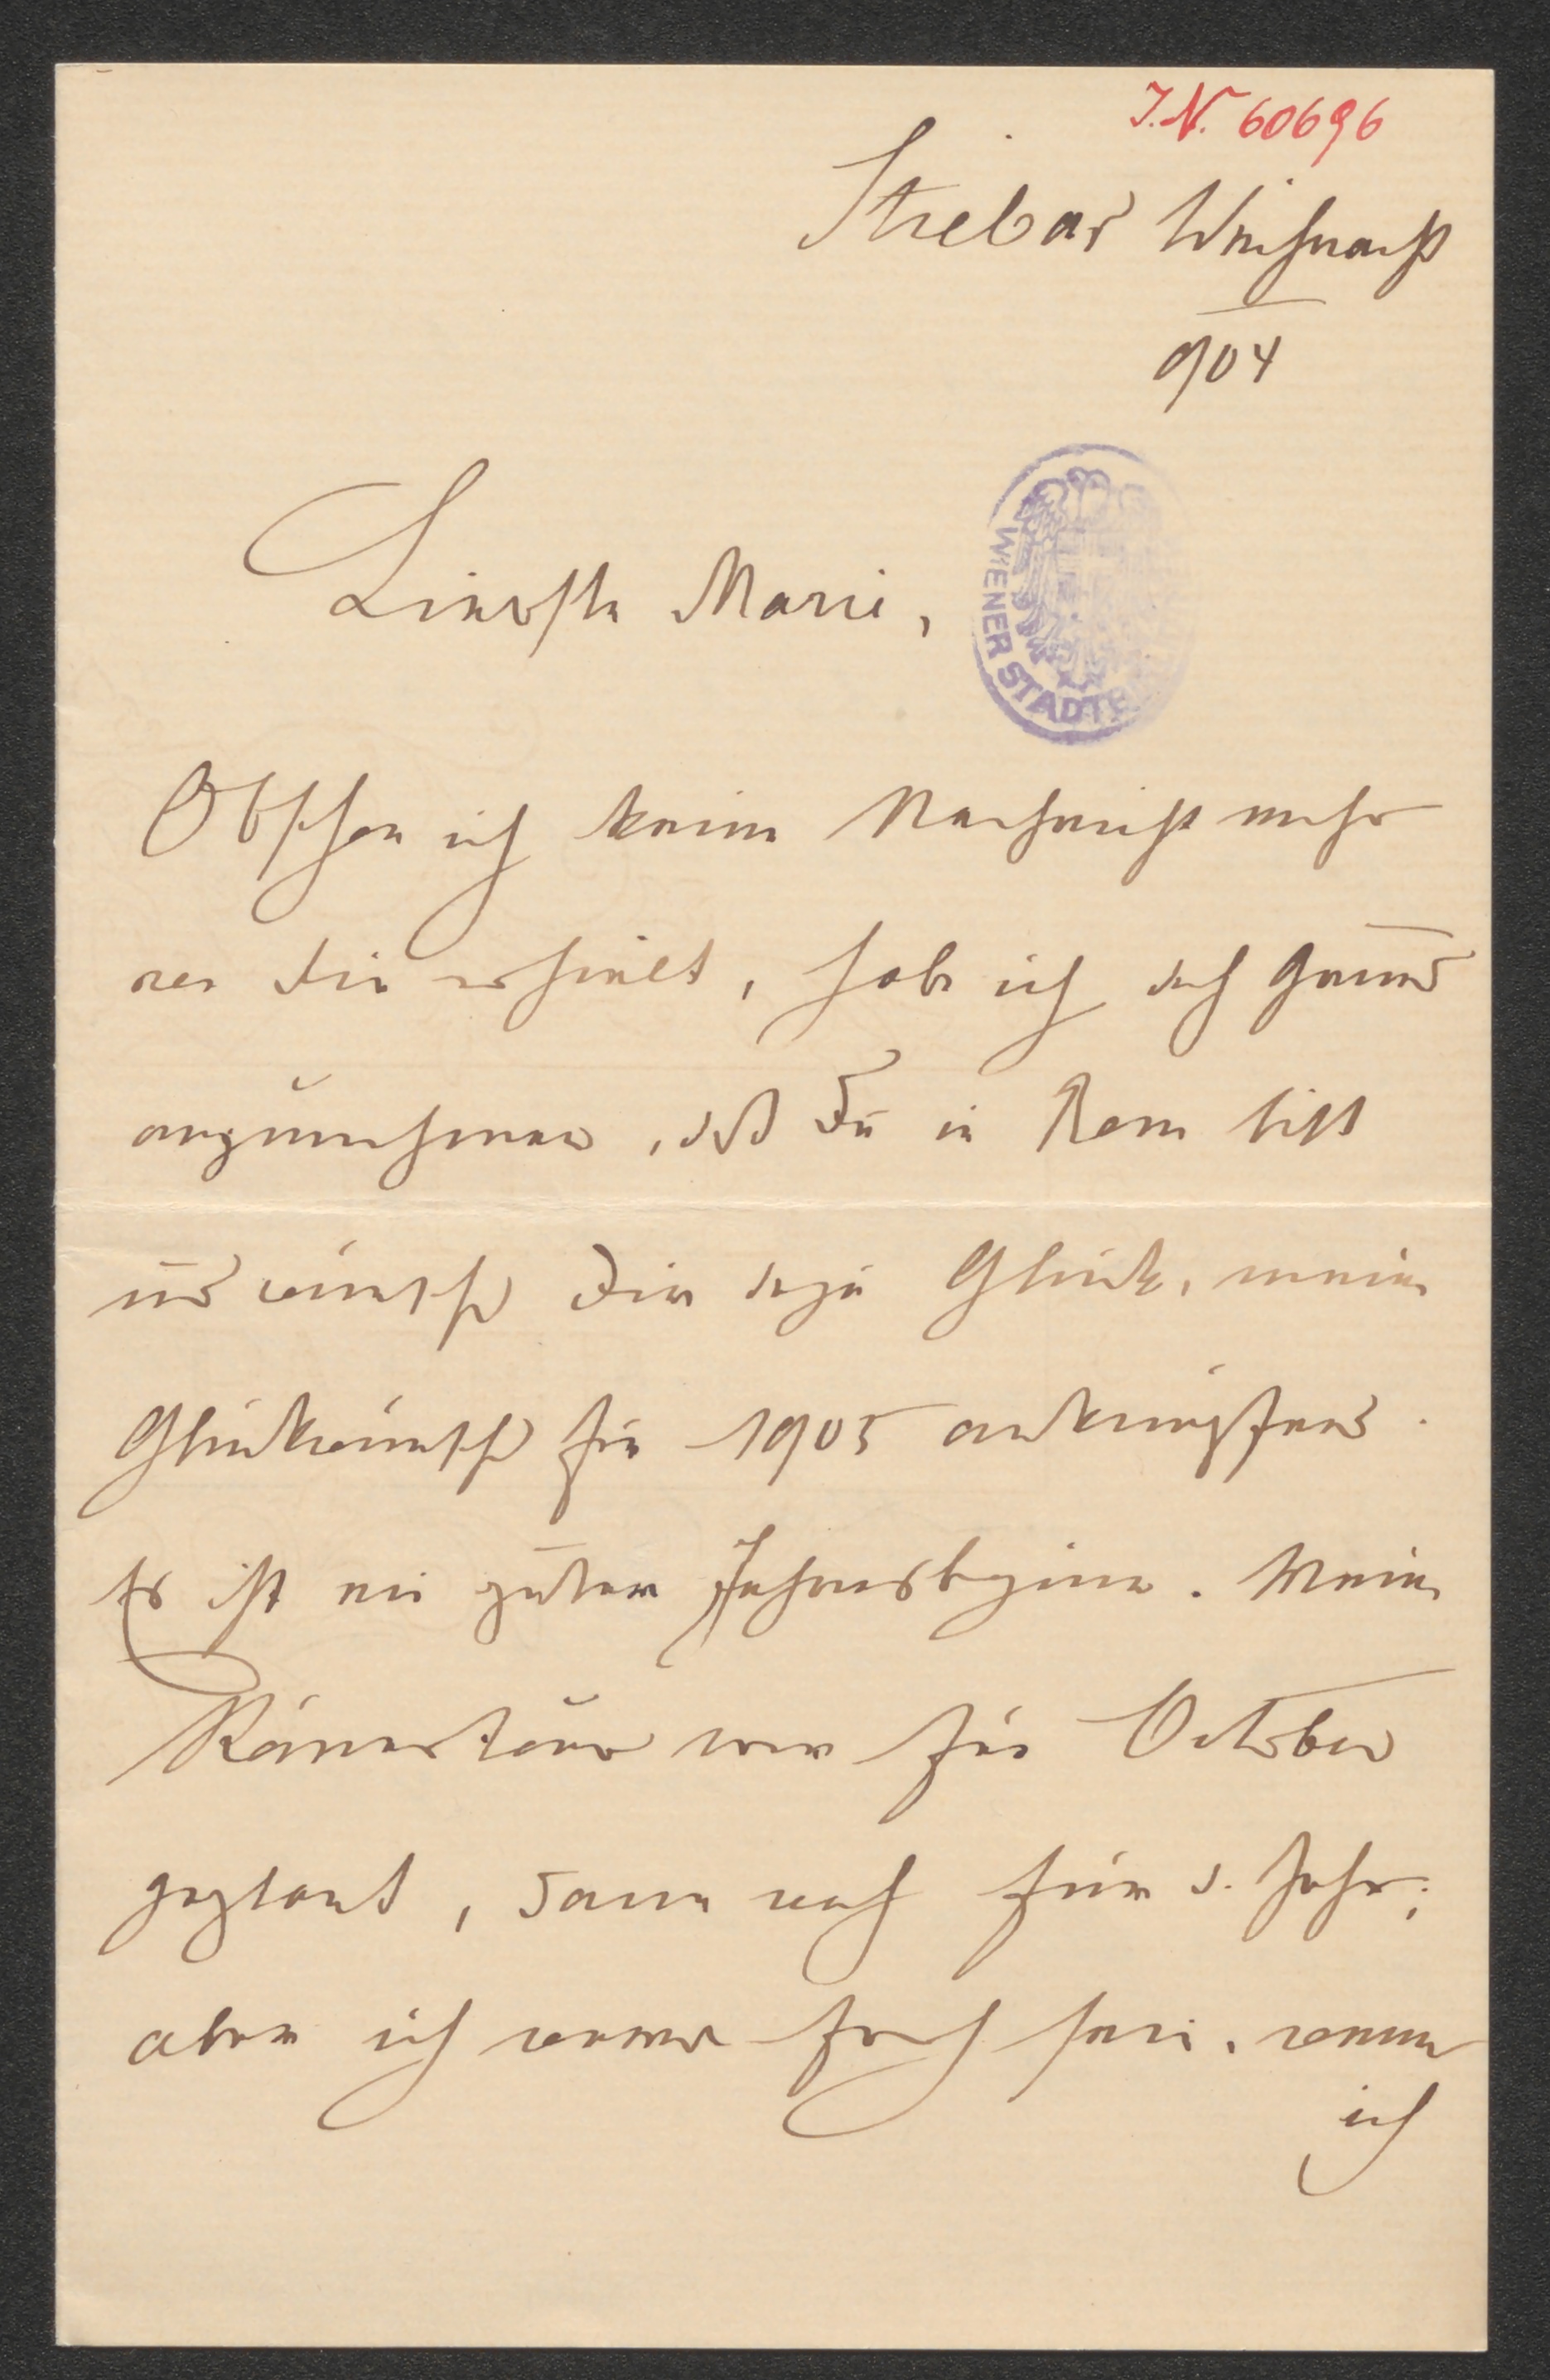 J.N. 60696
Strebas Weihnacht
904
WIENER STADTB
Liebste Marie,
Obschon ich keine Nachricht mehr
von dir erhielt, habe ich doch Grund
anzunehmen, daß Du in Rom bist
und wünsche Dir dazu Glück, meine
Glückwünsche für 1905 anknüpfend.
Es ist ein guter Jahresbeginn. Meine
Römertour war für October
geplant, dann noch für d. Jahr;
aber ich werde froh sein, wenn
ich